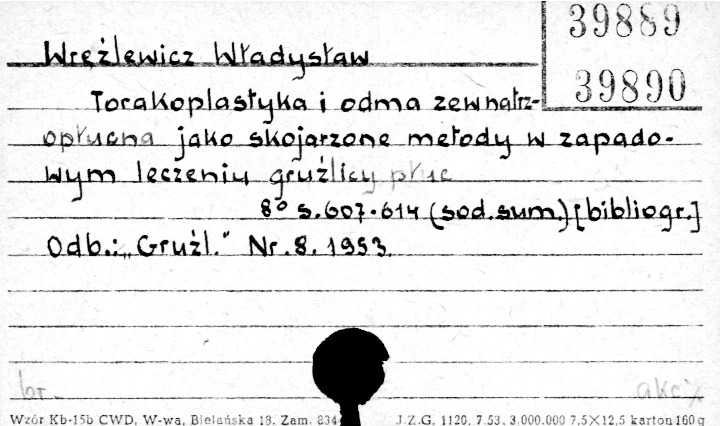 39889
Wrężlewicz Władysław
39890
Torakoplastyka i odma zewnątrz-
opłucna jako skojarzone metody w zapado-
wym leczeniu gruźlicy płuc
8° s.607-614 (sod.sum.) [bibliogr.]
Odb.: „Gruźl." Nr.8. 1953.
br. akc
Wzór Kb-15b CWD, W-wa, Bielańska 18. Zam. 834 J.Z.G. 1120. 7.53. 3.000.000 7,5×12,5 karton 160 g